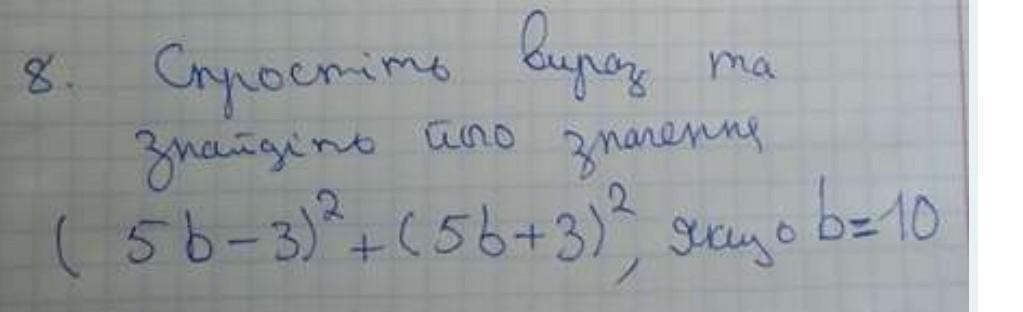 8. Спростіть вираз та
знайдіть його значення
( 5b-3)² + (5b+3)², якщо b=10